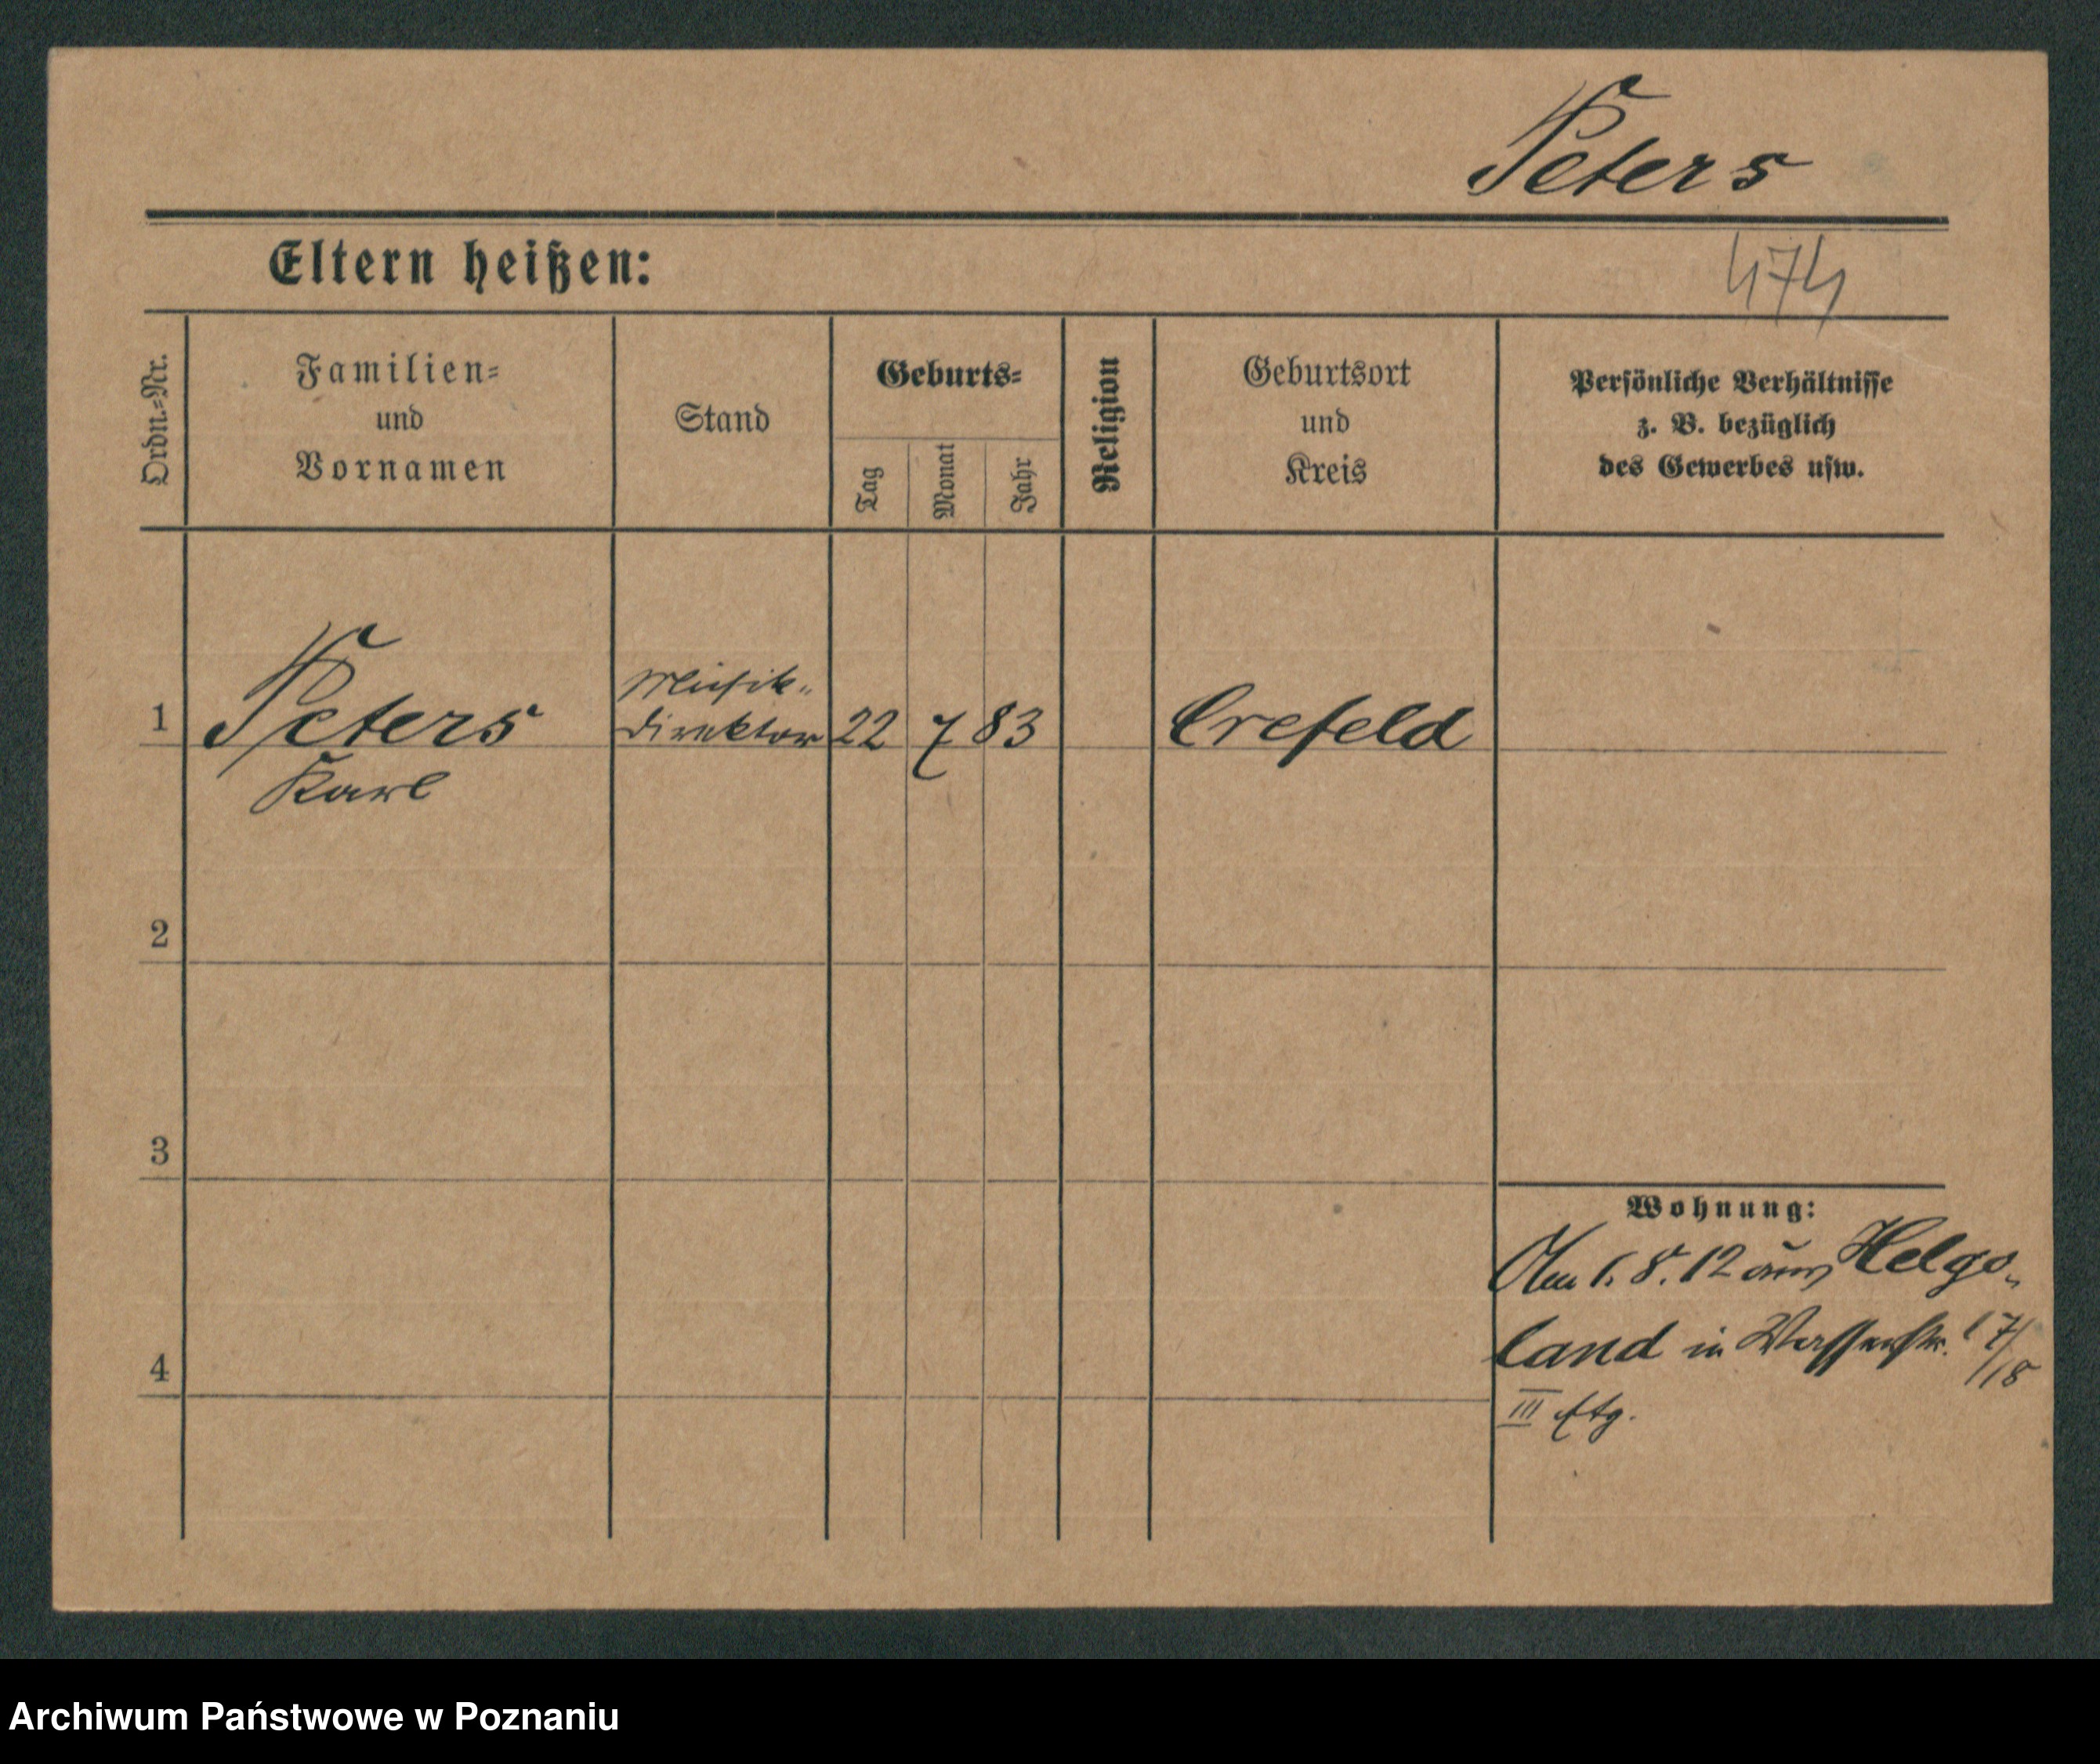 Peters
Eltern heißen:
474
Ordn.=Nr.
Familien=
und
Vornamen
Stand
Geburts=
Tag
Monat
Jahr
Religion
Geburtsort
und
Kreis
Persönliche Verhältnisse
z. B. bezüglich
des Gewerbes usw.
1
Peters
Karl
Musik=
direktor
22
7
83
Crefeld
2
3
4
Wohnung:
1. 8. 12 aus Helgo=
land in Wasserstr. 17/18
III Etg.
Archiwum Państwowe w Poznaniu